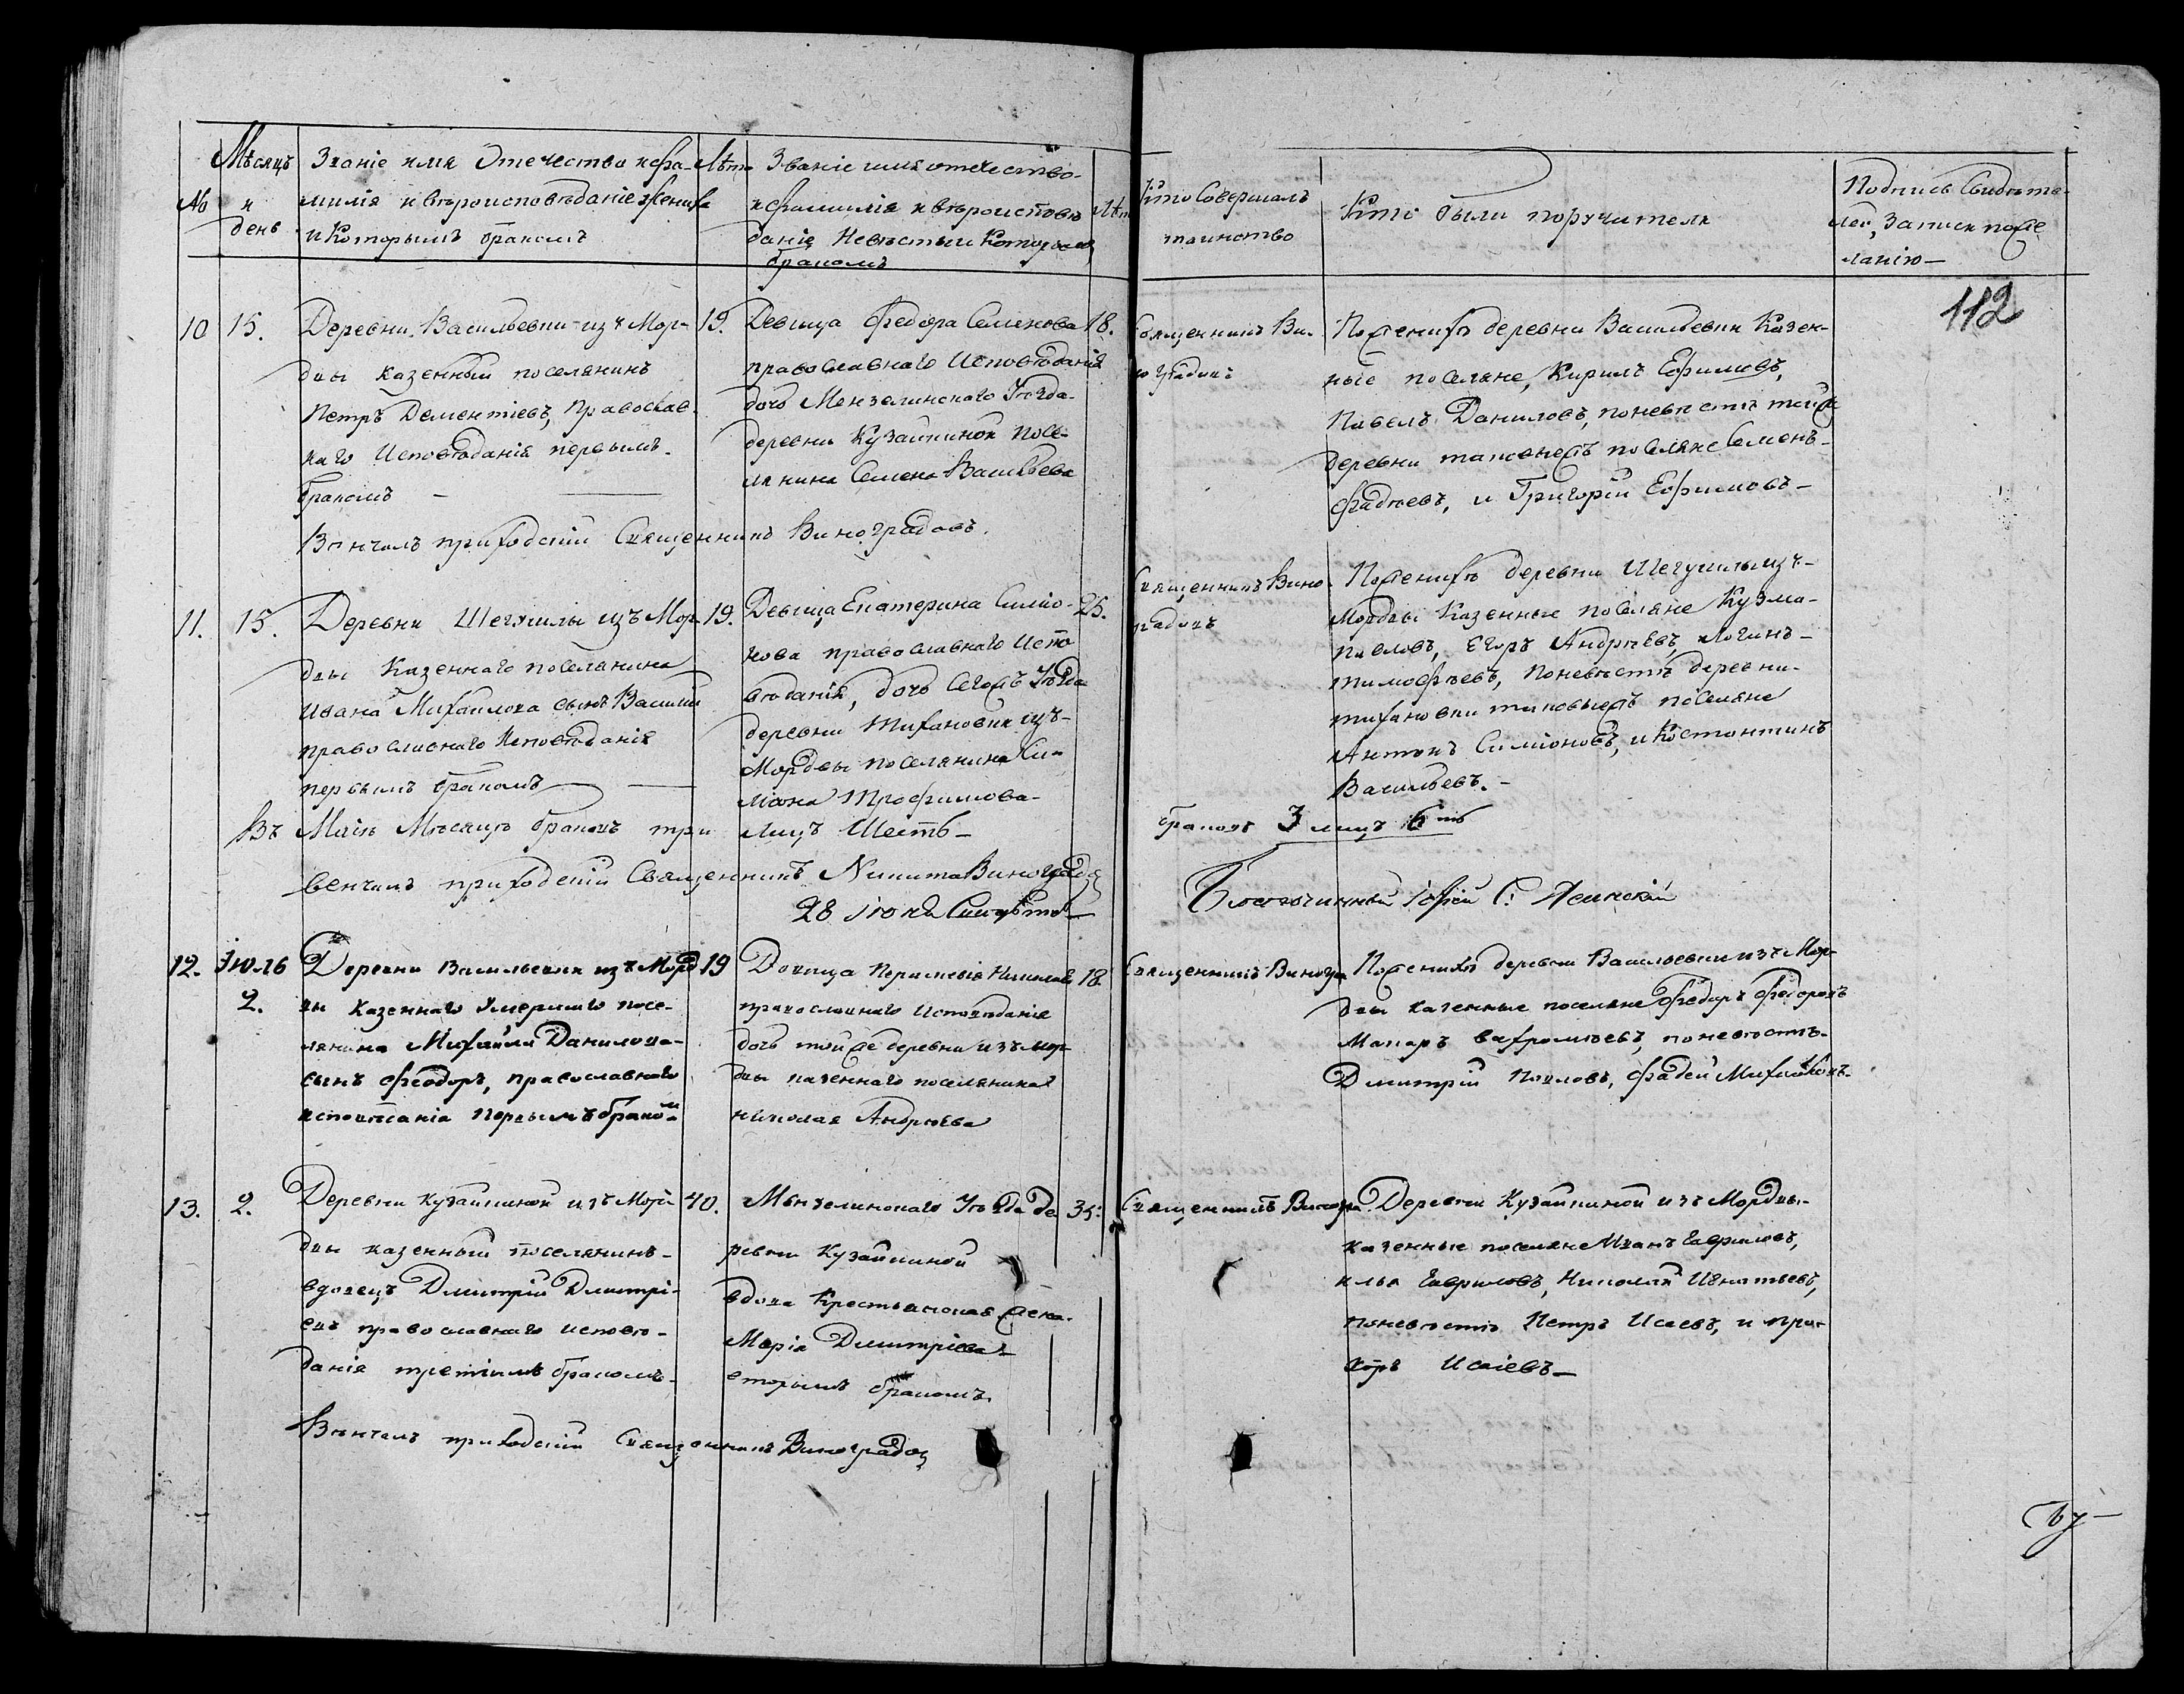 Мѣсяцъ
№ и
день
Званіе имя Отечество и фа-
милія и вѣроисповѣданіе жениха
и Которымъ бракомъ
Лѣта
Званіе имя отечество
и фамилія и вѣроисповѣ
даніе Невѣсты и Которымъ
бракомъ
Лѣта
Кто Совершалъ
таинство
Кто были поручители
Подпись Свидѣте-
лей, записи по же
ланію —
112
10 15.
Деревни Васильевки изъ Мор-
двы казенный поселянинъ
Петръ Дементіевъ, Православ-
наго Исповѣданія первымъ
бракомъ —
19.
Девица Федора Семенова
православнаго Исповѣданія
дочь Мензелинскаго Уѣзда
деревни Кузайкиной Посе-
лянина Семена Васильева
18.
Священникъ Ви-
ноградовъ
По женихѣ деревни Васильевки Казен-
ные поселяне, Кирилъ Ефимовъ,
Павелъ Даниловъ, по невѣстѣ той же
деревни поселяне Семенъ
Фадѣевъ, и Григорій Ефимовъ —
Вѣнчалъ приходскій Священникъ Виноградовъ.
11. 15.
Деревни Шегушилы изъ Мор-
двы Казеннаго поселянина
Ивана Михаилова сынъ Василій
православнаго Исповѣданія
первымъ бракомъ —
19.
Девица Екатерина Симіо-
нова православнаго Испо
вѣданія, дочь сегожъ Уѣзда
деревни Тихановки изъ
Мордвы поселянина Си-
міона Трофимова
25.
Священникъ Вино
градовъ
По женихѣ деревни Шегушилы изъ
Мордвы Казенные поселяне Кузма
Павловъ, Егоръ Андрѣевъ, Логинъ
Тимофѣевъ, По невѣстѣ деревни
Тихановки таковыежъ поселяне
Антонъ Симіоновъ, и Костонтинъ
Васильевъ. —
Въ Маіѣ Мѣсяцѣ браковъ три лицъ Шесть —
браковъ 3 лицъ 6ть
венчалъ приходскій Священникъ Никита Виноградов
28 Іюня
Благочинный Іерей С. Ясинскій
12. Іюль
2.
Деревни Васильевки изъ Морд
вы Казеннаго Умершаго посе-
лянина Михаила Данилова
сынъ Феодоръ, православнаго
исповѣданія первымъ бракомъ
19
Девица
православнаго Исповѣданія
дочь той же деревни изъ Мор-
двы казеннаго поселянина
Николая Андрѣева
18.
Священникъ Виногра
По женихѣ деревни Васильевки изъ Мор-
двы казенные поселяне Федоръ Федоровъ
Макаръ Вахромѣевъ, по невѣстѣ
Дмитрій Павловъ, Фадей Михайловъ.
13. 2.
Деревни Кузайкиной изъ Мор-
двы казенный поселянинъ
вдовецъ Дмитрій Дмитрі-
евъ православнаго исповѣ-
данія третіимъ бракомъ
40.
Мензелинскаго Уѣзда де
ревни Кузайкиной
вдова Крестьянская жена
Марія Дмитріева
вторымъ бракомъ
35.
Священникъ Виногра
Деревни Кузайкиной изъ Мордвы
казенные поселяне Иванъ Гавриловъ,
Илья Гавриловъ, Николай Игнатьевъ,
по невѣстѣ Петръ Исаевъ, и Про-
хоръ Исаіевъ —
Вѣнчалъ приходскій Священникъ Виноградов